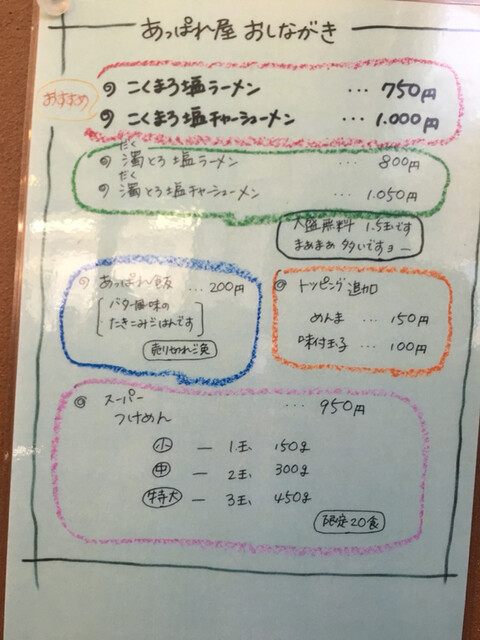 あっぱれ屋 おしながき
おすすめ
こくまろ塩ラーメン … 750円
こくまろ塩チャーシューメン … 1.000円
だく
濁とろ塩ラーメン … 800円
だく
濁とろ塩チャーシューメン … 1.050円
大盛無料 1.5玉です
まぁまぁ多いですョー
あっぱれ飯 … 200円
バター風味の
たきこみごはんです
売り切れ御免
トッピング追加
めんま … 150円
味付玉子 … 100円
スーパー
つけめん … 950円
小 ー 1玉 150g
中 ー 2玉 300g
特大 ー 3玉 450g
限定20食